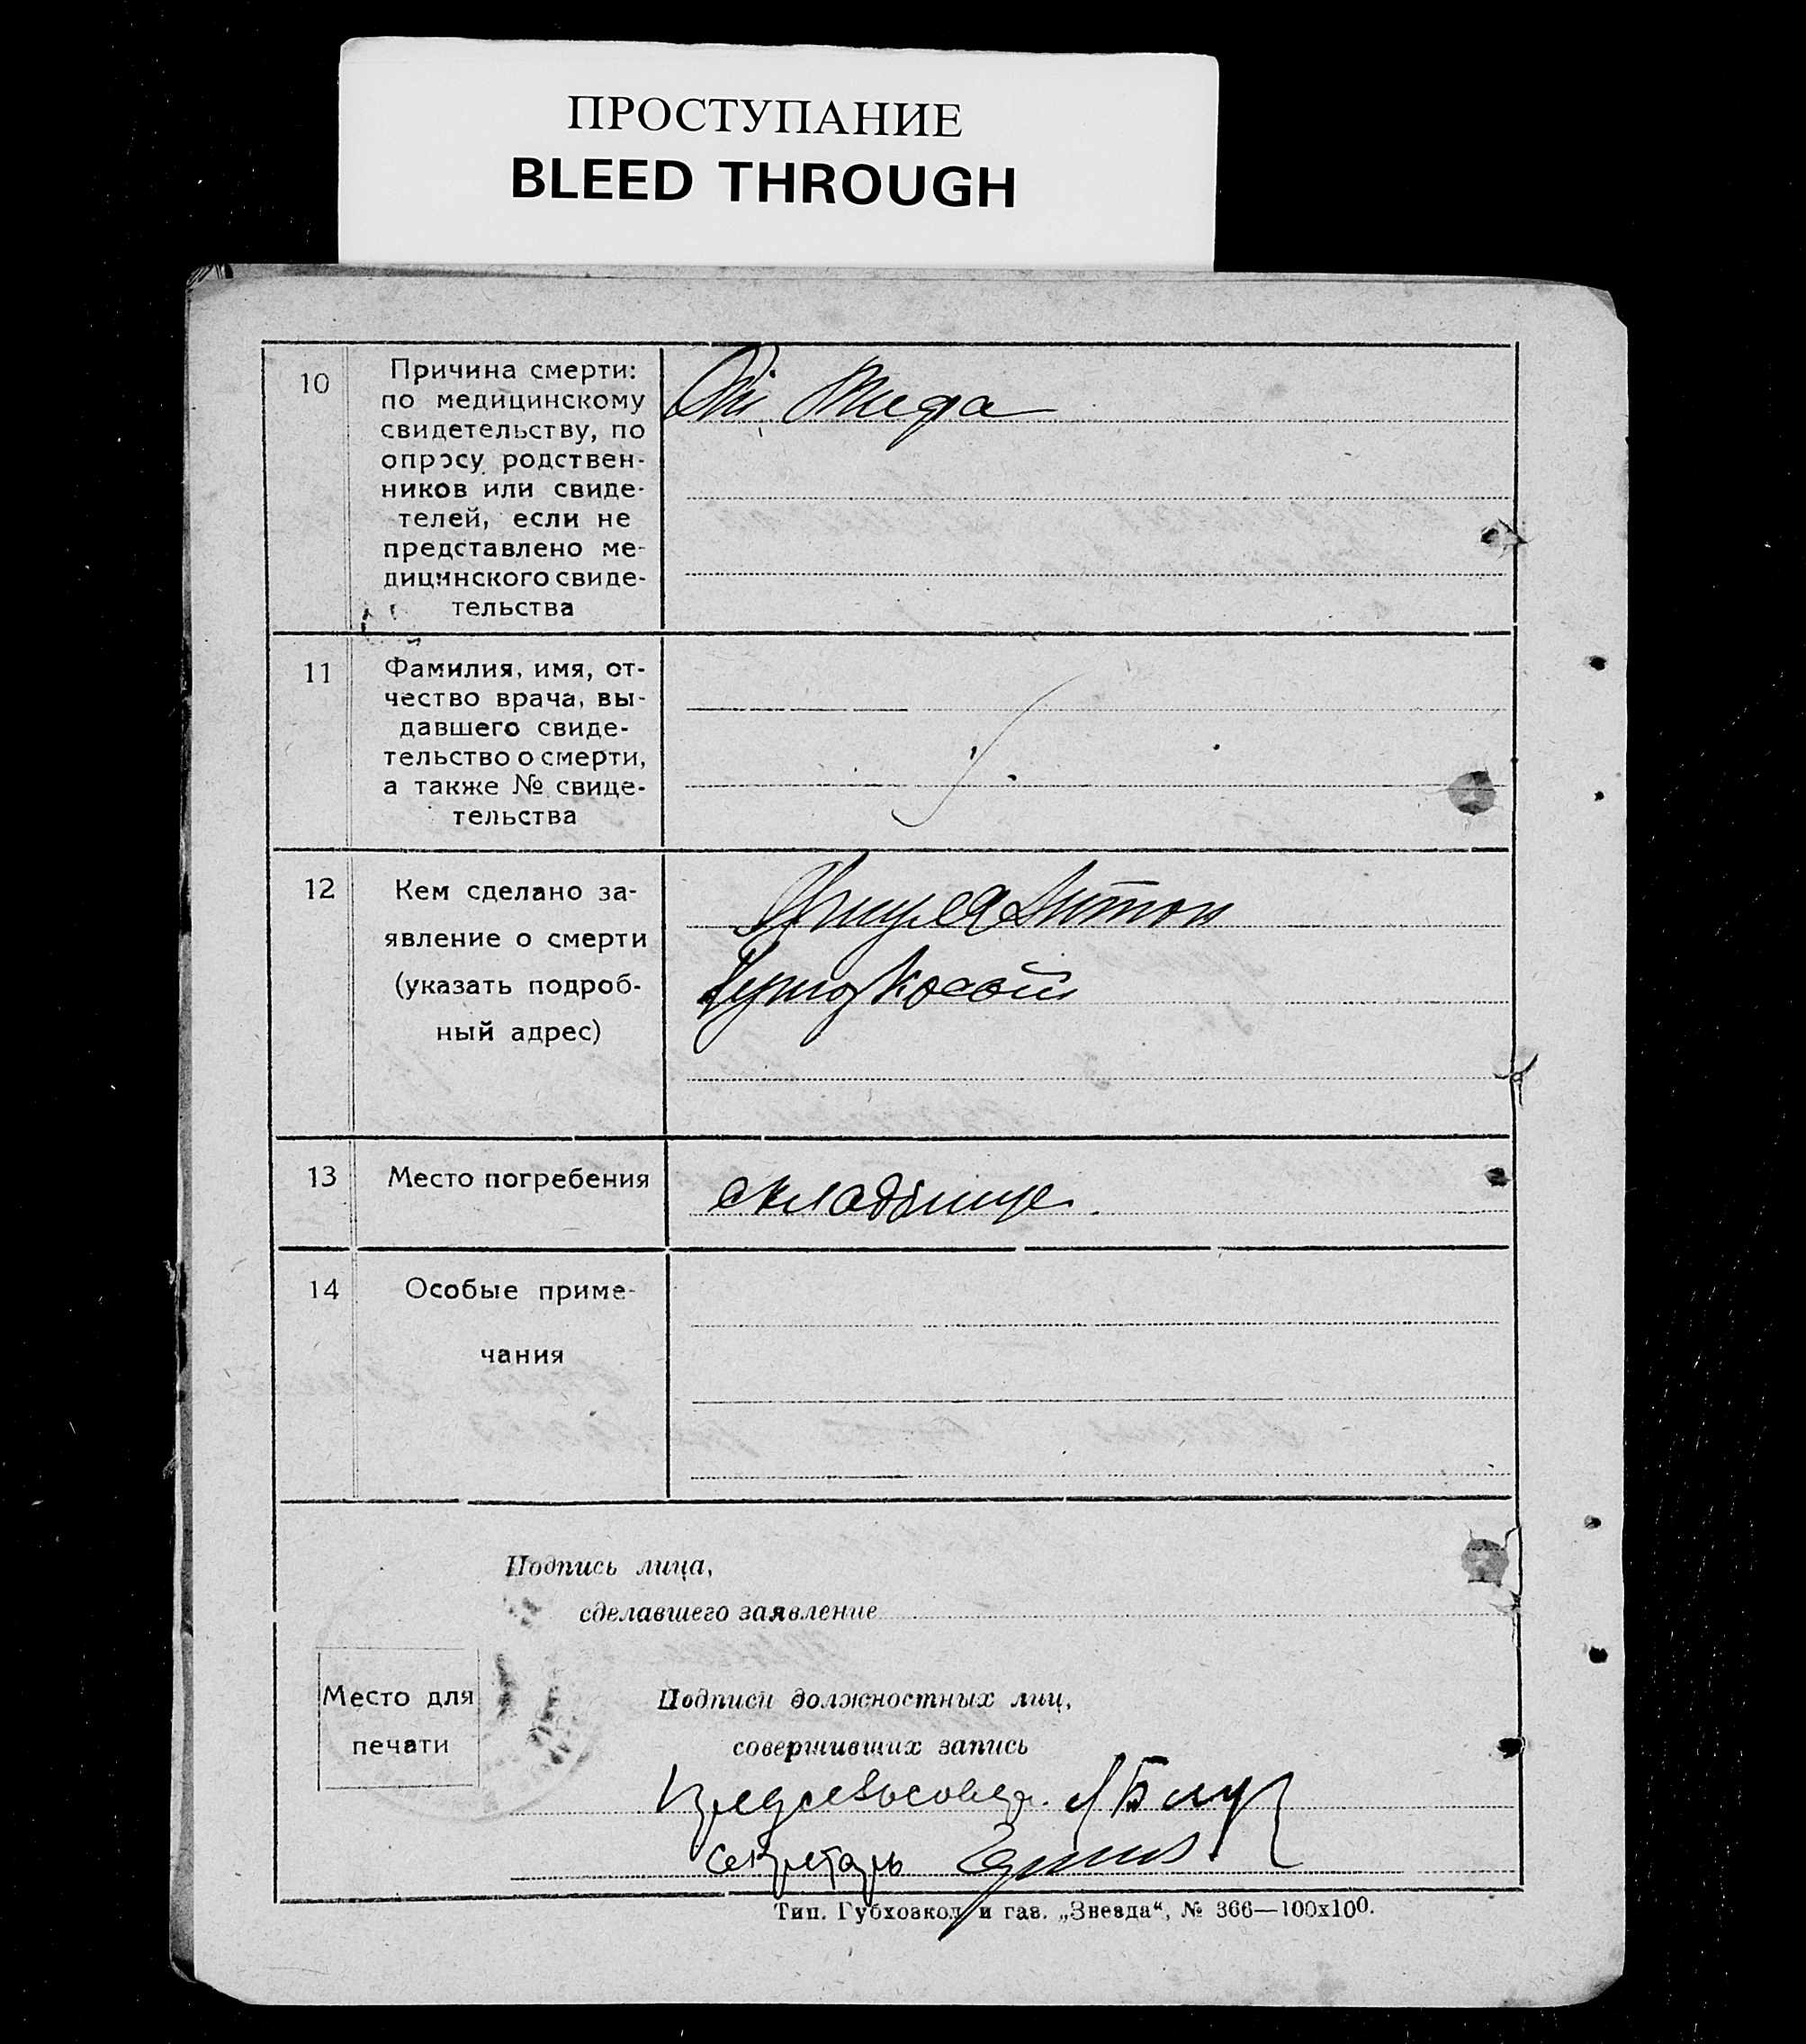 ПРОСТУПАНИЕ
BLEED THROUGH
10
Причина смерти:
по медицинскому
свидетельству, по
опросу родствен-
ников или свиде-
телей, если не
представлено ме-
дицинского свиде-
тельства
11
Фамилия, имя, от-
чество врача, вы-
давшего свиде-
тельство о смерти,
а также № свиде-
тельства
12
Кем сделано за-
явление о смерти
(указать подроб-
ный адрес)
Антон
13
Место погребения
кладбище
14
Особые приме-
чания
Подпись лица,
сделавшего заявление
Место для
печати
Подписи должностных лиц,
совершивших запись
Секретарь
Тип. Губхозкол. и газ. „Звезда“, № 366—100х100.